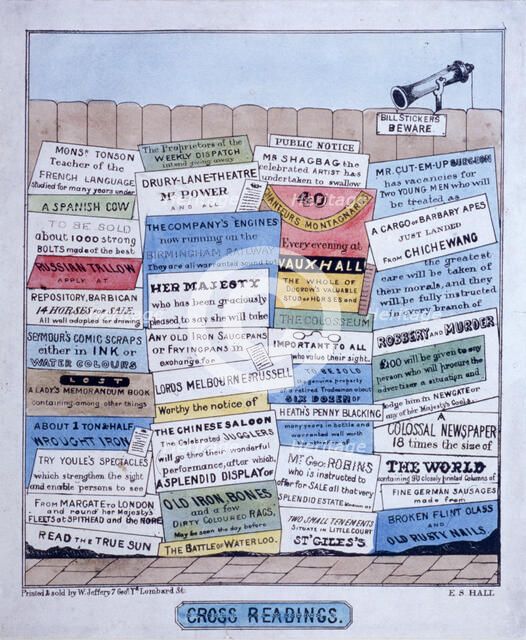 BILL STICKERS
BEWARE.
MONSR. TONSON
Teacher of the
FRENCH LANGUAGE
Studied for many years under
A SPANISH COW
TO BE SOLD
about 1000 strong
BOLTS made of the best
RUSSIAN TALLOW
APPLY AT
REPOSITORY, BARBICAN
14 HORSES FOR SALE.
All well adapted for drawing
SEYMOUR'S COMIC SCRAPS
either in INK or
WATER COLOURS
LOST
A LADY'S MEMORANDUM BOOK
containing among other things
ABOUT 1 TON & HALF
WROUGHT IRON
TRY YOULE'S SPECTACLES
which strengthen the sight
and enable persons to see
FROM MARGATE TO LONDON
and round her Majesty's
FLEETS AT SPITHEAD and THE NORE
READ THE TRUE SUN
The Proprietors of the
WEEKLY DISPATCH
intend giving away
DRURY-LANE THEATRE
MR. POWER
AND A
THE COMPANY'S ENGINES
now running on the
BIRMINGHAM RAILWAY
They are all warranted sound but
HER MAJESTY
who has been graciously
pleased to say she will take
ANY OLD IRON SAUCEPANS
or FRYINGPANS in
exchange for
LORDS MELBOURNE & RUSSELL
Worthy the notice of
THE CHINESE SALOON
The Celebrated JUGGLERS
will go thro their wonderful
performance, after which,
A SPLENDID DISPLAY OF
OLD IRON, BONES
and a few
DIRTY COLOURED RAGS.
May be seen the day before
THE BATTLE OF WATERLOO.
PUBLIC NOTICE
MR SHAGBAG the
celebrated ARTIST has
undertaken to swallow
40
CHANTEURS MONTAGNARDS
Every evening at
VAUXHALL
THE WHOLE OF
DUCROW'S VALUABLE
STUD of HORSES and
THE COLOSSEUM
IMPORTANT TO ALL
who value their sight.
TO BE SOLD
the genuine property
of a retired Tradesman about
SIX DOZEN OF
HEATH'S PENNY BLACKING
many years in bottle and
warranted well worth
the notice of
MR. GEO. ROBINS
who is instructed to
offer for SALE all that very
SPLENDID ESTATE known as
TWO SMALL TENEMENTS
SITUATE IN LITTLE COURT
ST. GILES'S
MR. CUT-EM-UP SURGEON
has vacancies for
TWO YOUNG MEN who will
be treated as
A CARGO OF BARBARY APES
JUST LANDED
FROM CHICHEWANG
the greatest
care will be taken of
their morals, and they
will be fully instructed
in every branch of
ROBBERY AND MURDER
£100 will be given to any
person who will procure the
advertiser a situation and
lodge him in NEWGATE or
any of her Majesty's Gaols.
A
COLOSSAL NEWSPAPER
18 times the size of
THE WORLD
containing 90 closely printed Columns of
FINE GERMAN SAUSAGES
made from
BROKEN FLINT GLASS
AND
OLD RUSTY NAILS.
Printed & sold by W. Jeffery 7 Geo. Yd. Lombard St.
E. S. HALL
CROSS READINGS.